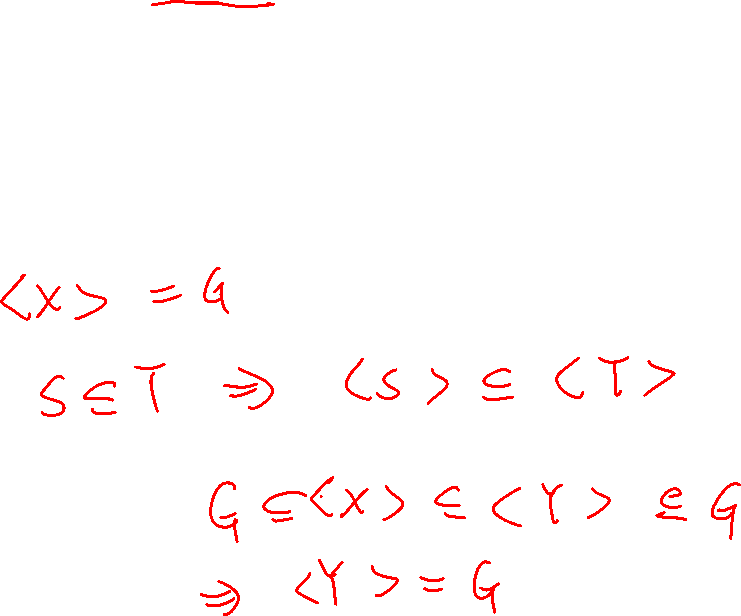 <X> = G
S ⊆ T ⇒ <S> ⊆ <T>
G ⊆ <X> ⊆ <Y> ⊆ G
⇒ <Y> = G